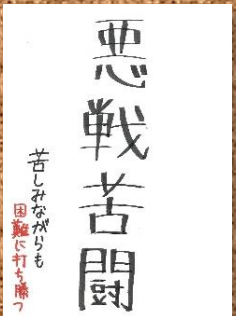 悪戦苦闘
苦しみながらも
困難に打ち勝つ